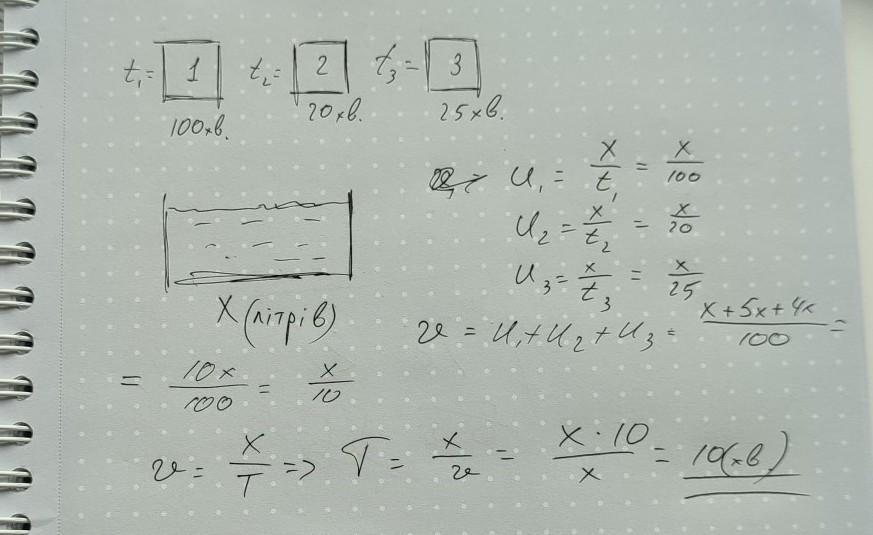 t₁ = 1 t₂ = 2 t₃ = 3
100хв. 20хв. 25хв.
u₁ = x/t₁ = x/100
u₂ = x/t₂ = x/20
u₃ = x/t₃ = x/25
X (літрів)
v = u₁ + u₂ + u₃ = (x + 5x + 4x)/100 =
= 10x/100 = x/10
v = x/T => T = x/v = (x · 10)/x = 10(хв)